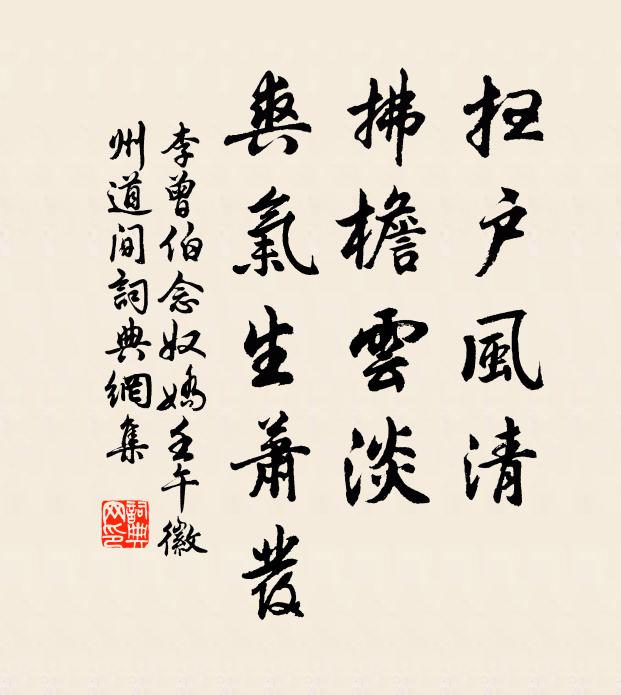 扫户風清
拂檐雲淡
爽氣生蕭發
李曾伯念奴嬌壬午徽
州道间詞典網集
詞典
网印